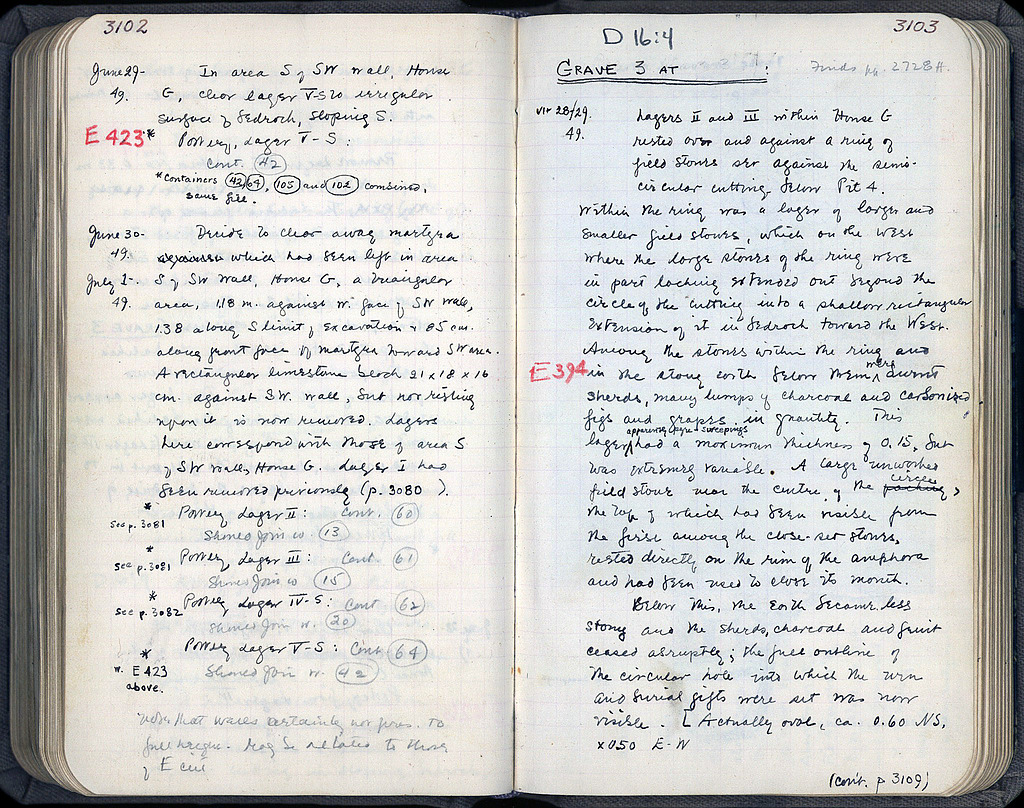 3102
June 29- In area S of SW wall, House
49. G, clear layer V-S to irregular
surface of bedrock, sloping S.
E 423 * Pottery, layer V-S:
Cont. 42
* Containers 42, 64, 103 and 102 combined,
same fill.
June 30- Decide to clear away martyra
49. which had been left in area
July 1- S of SW wall, House G, a triangular
49. area, 1.18 m. against W. face of SW wall,
1.38 along S limit of excavation & 85 cm.
along front face of martyra toward SW area.
A rectangular limestone block 21 x 18 x 16
cm. against SW. wall, but not resting
upon it is now removed. Layers
here correspond with those of area S
of SW wall, House G. Layer I had
been removed previously (p. 3080 ).
* Pottery Layer II: Cont. 60
See p. 3081
Shmed Join w. 13
* Pottery Layer III: Cont. 61
See p. 3081
Shmed Join w 15
* Pottery Layer IV-S: Cont 62
See p. 3082
Shmed Join w. 20
* Pottery Layer V-S: Cont 64
w. E 423
above.
Shmed Join w. 42
Note that walls certainly not pres. to
full height. May be related to those
of E
3103
D 16:4
GRAVE 3 AT : Finds pg. 2728 ff.
VII 28/29. Layers II and III within House G
49. rested over and against a ring of
field stones set against the semi-
circular cutting below Pit 4.
Within the ring was a layer of larger and
smaller field stones, which on the West
where the large stones of the ring were
in part lacking extended out beyond the
circle of the cutting into a shallow rectangular
extension of it in bedrock toward the West.
Among the stones within the ring and
E 394 in the stony earth below them were burnt
sherds, many lumps of charcoal and carbonized
figs and grapes in quantity. This
layer, apparently pyre sweepings, had a maximum thickness of 0.15, but
was extremely variable. A large unworked
field stone near the centre of the circle,
the top of which had been visible from
the first among the close-set stones,
rested directly on the rim of the amphora
and had been used to close its mouth.
Below this, the earth became less
stony and the sherds, charcoal and fruit
ceased abruptly; the full outline of
the circular hole into which the urn
and burial gifts were set was now
visible. [Actually oval, ca. 0.60 NS,
x 050 E-W
(cont. p 3109)